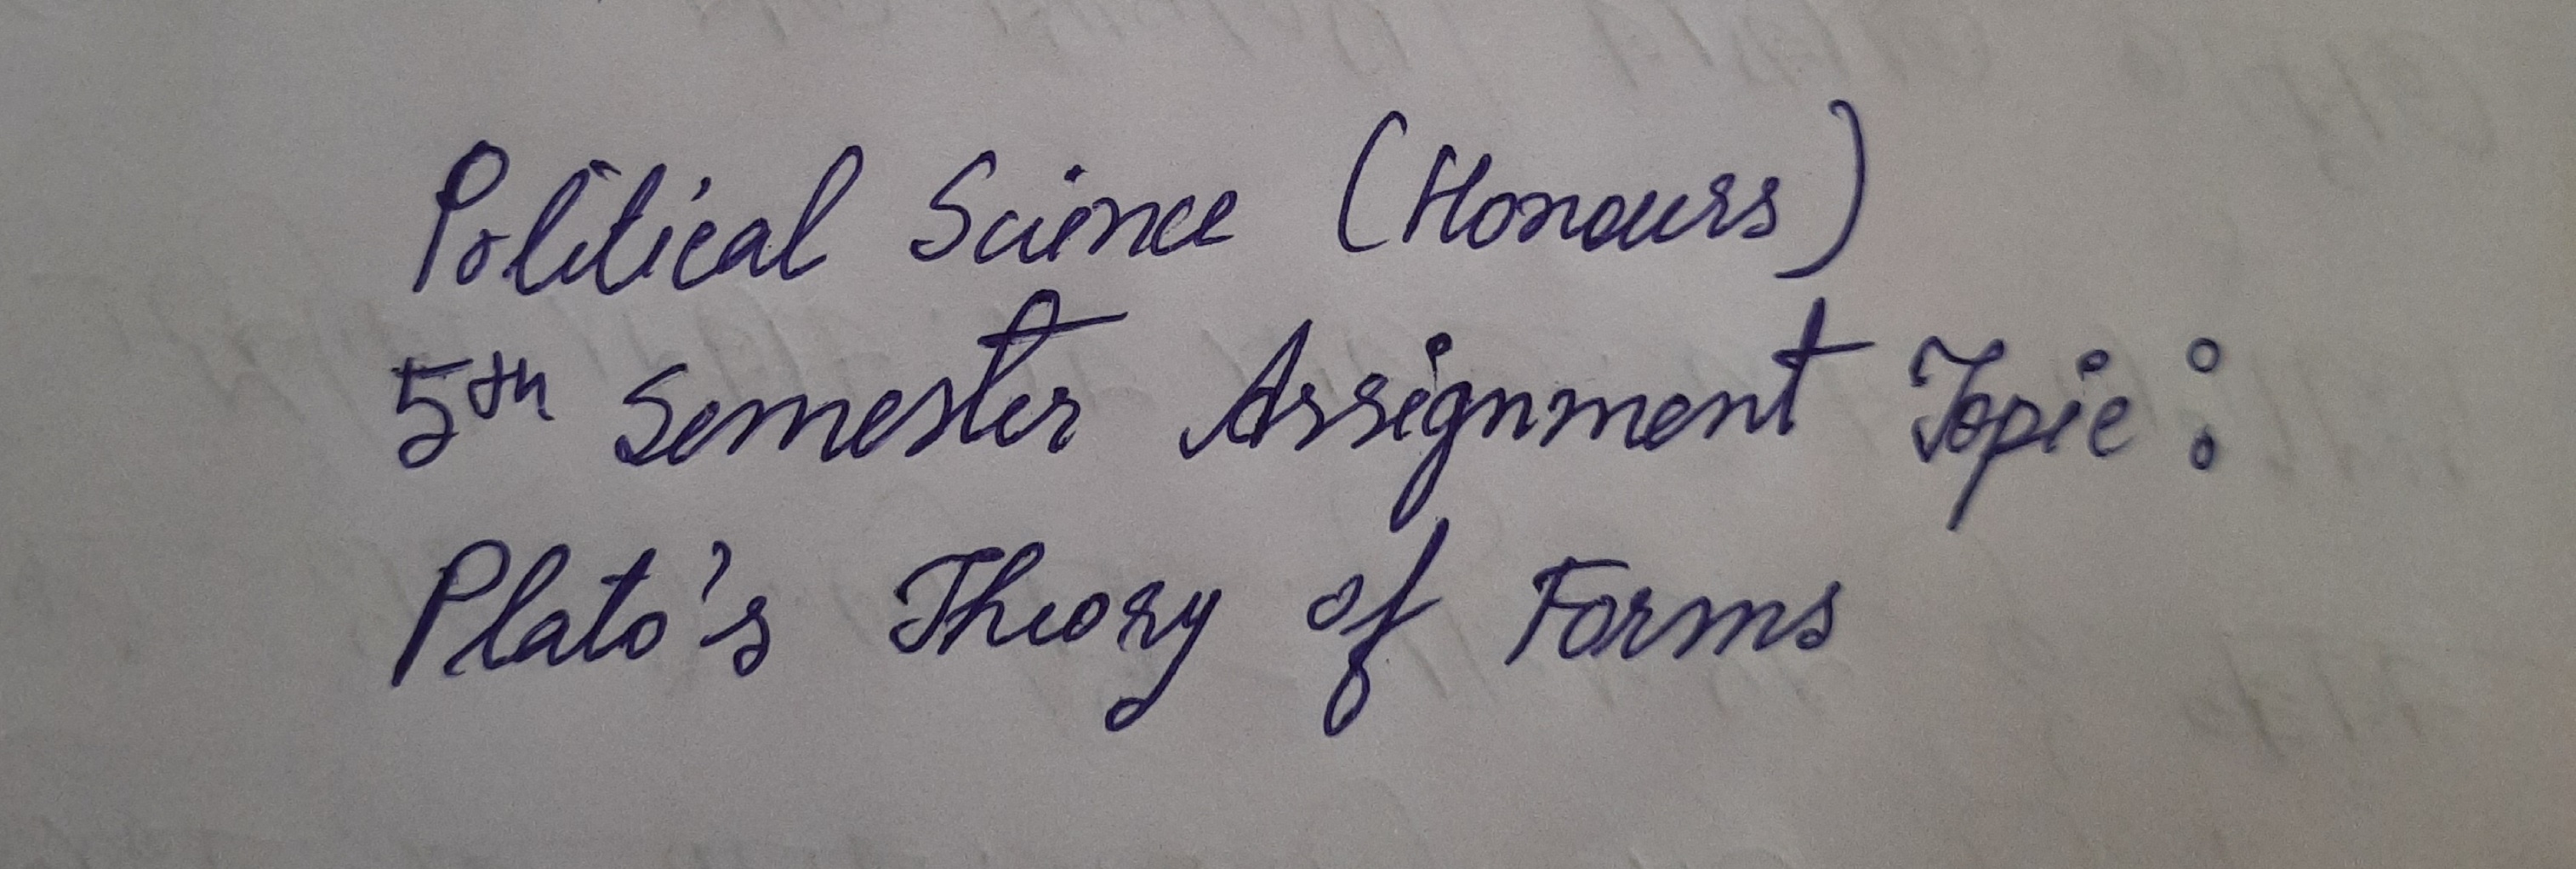 Political Science (Honours)
5th Semester Assignment Topic :
Plato's Theory of Forms